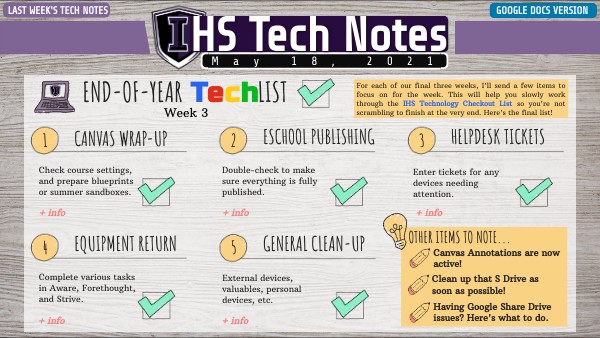 LAST WEEK'S TECH NOTES
GOOGLE DOCS VERSION
IHS Tech Notes
May 18, 2021
END-OF-YEAR TechLIST
Week 3
For each of our final three weeks, I'll send a few items to
focus on for the week. This will help you slowly work
through the IHS Technology Checkout List so you're not
scrambling to finish at the very end. Here's the final list!
1 CANVAS WRAP-UP
Check course settings,
and prepare blueprints
or summer sandboxes.
+ info
2 ESCHOOL PUBLISHING
Double-check to make
sure everything is fully
published.
+ info
3 HELPDESK TICKETS
Enter tickets for any
devices needing
attention.
+ info
4 EQUIPMENT RETURN
Complete various tasks
in Aware, Forethought,
and Strive.
+ info
5 GENERAL CLEAN-UP
External devices,
valuables, personal
devices, etc.
+ info
OTHER ITEMS TO NOTE...
Canvas Annotations are now
active!
Clean up that S Drive as
soon as possible!
Having Google Share Drive
issues? Here's what to do.